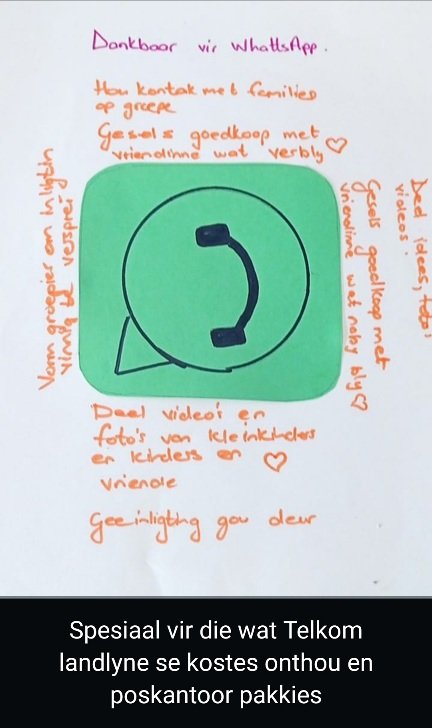 Dankbaar vir WhattsApp.
Hou kontak met families
op groepe
Gesels goedkoop met
vriendinne wat verbly
Vorm groepies om inligtin
vinnig te versprei
Gesels goedkoop met
vriendinne wat naby bly
Deel idees, foto's
videos.
Deel video's en
foto's van kleinkinders
en kinders en
vriende
Gee inligting gou deur
Spesiaal vir die wat Telkom
landlyne se kostes onthou en
poskantoor pakkies